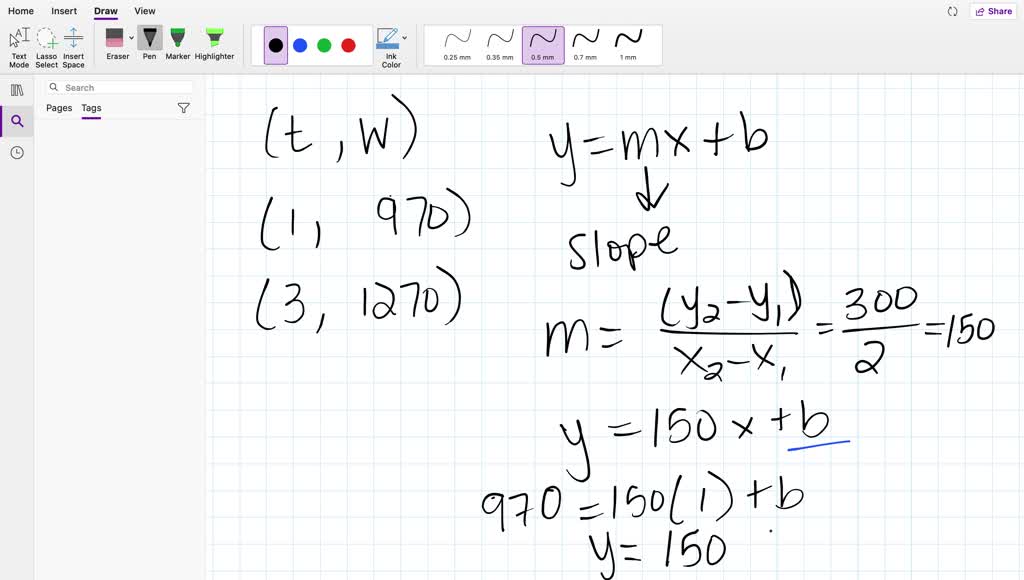 Home Insert Draw View
Share
Text Mode
Lasso Select
Insert Space
Eraser
Pen
Marker
Highlighter
Ink Color
0.25 mm
0.35 mm
0.5 mm
0.7 mm
1 mm
Search
Pages Tags
(t, W)
(1, 970)
(3, 1270)
y = mx + b
↓
slope
m = (y₂ - y₁) / x₂ - x₁ = 300 / 2 = 150
y = 150x + b
970 = 150(1) + b
y = 150